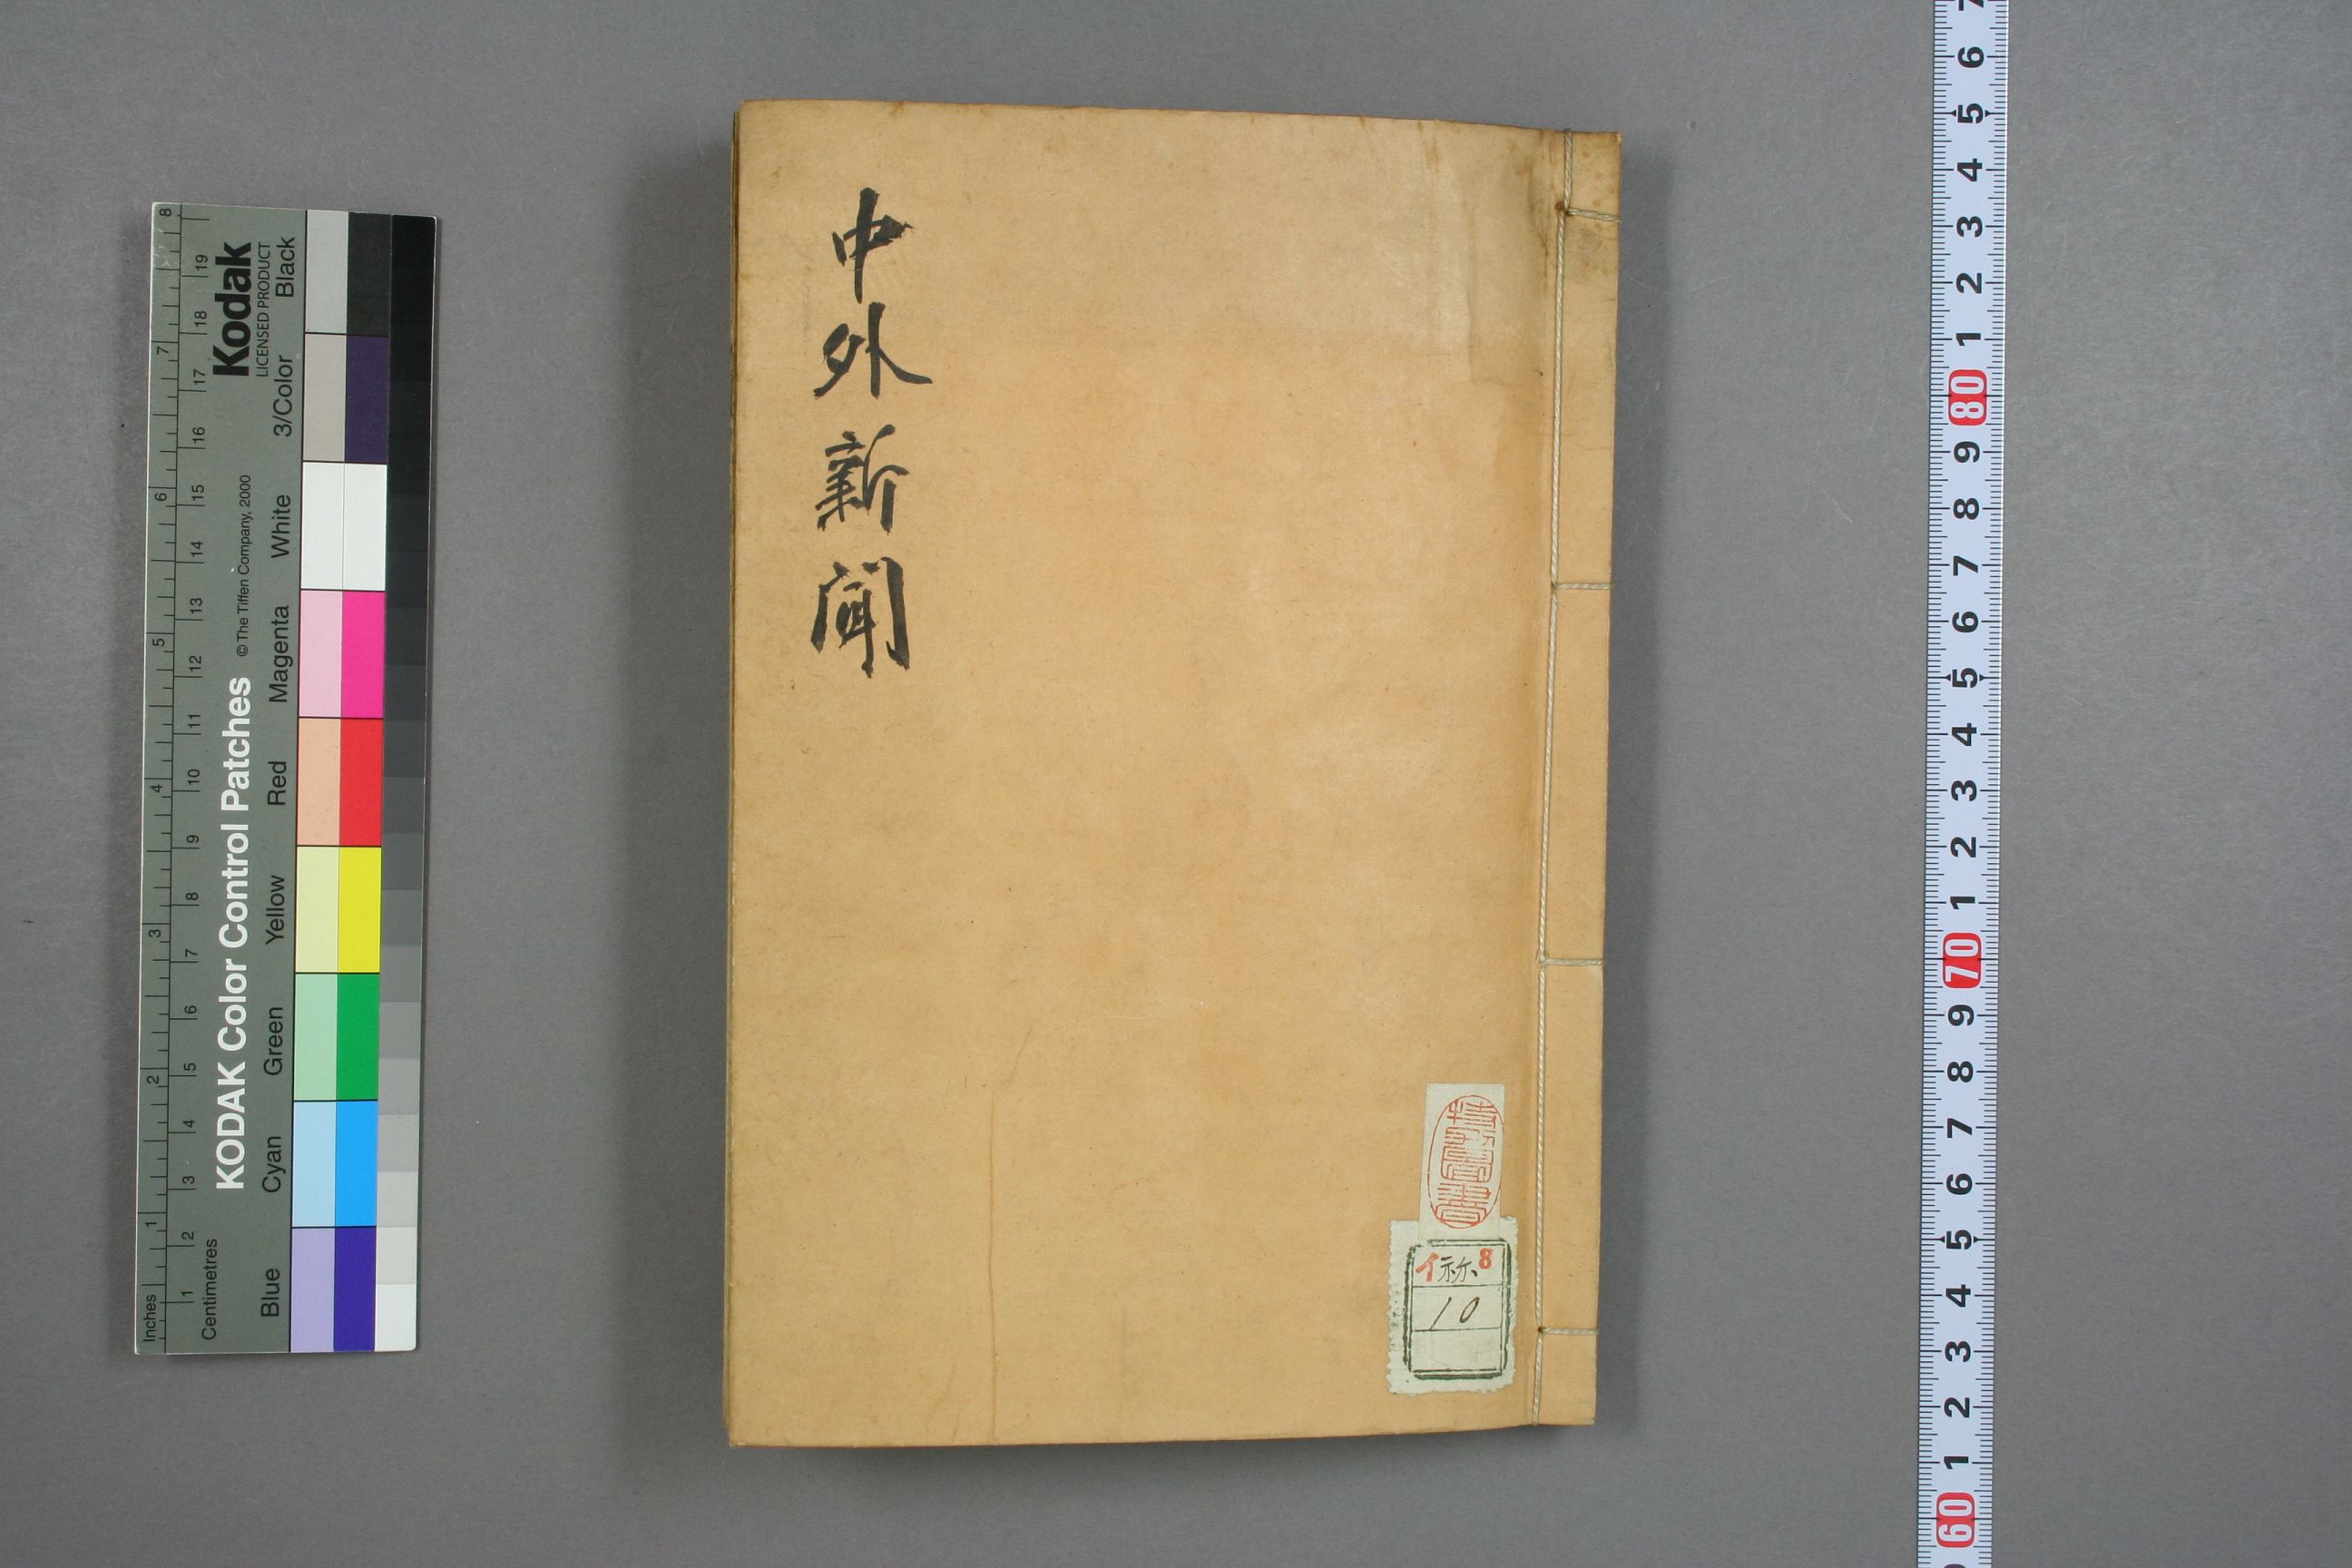 中外新聞
特別買上文庫
イ 8
10
KODAK Color Control Patches
© The Tiffen Company, 2000
Kodak
LICENSED PRODUCT
Inches 1 2 3 4 5 6 7 8
Centimetres 1 2 3 4 5 6 7 8 9 10 11 12 13 14 15 16 17 18 19
Blue Cyan Green Yellow Red Magenta White 3/Color Black
7 6 5 4 3 2 1 80 9 8 7 6 5 4 3 2 1 70 9 8 7 6 5 4 3 2 1 60